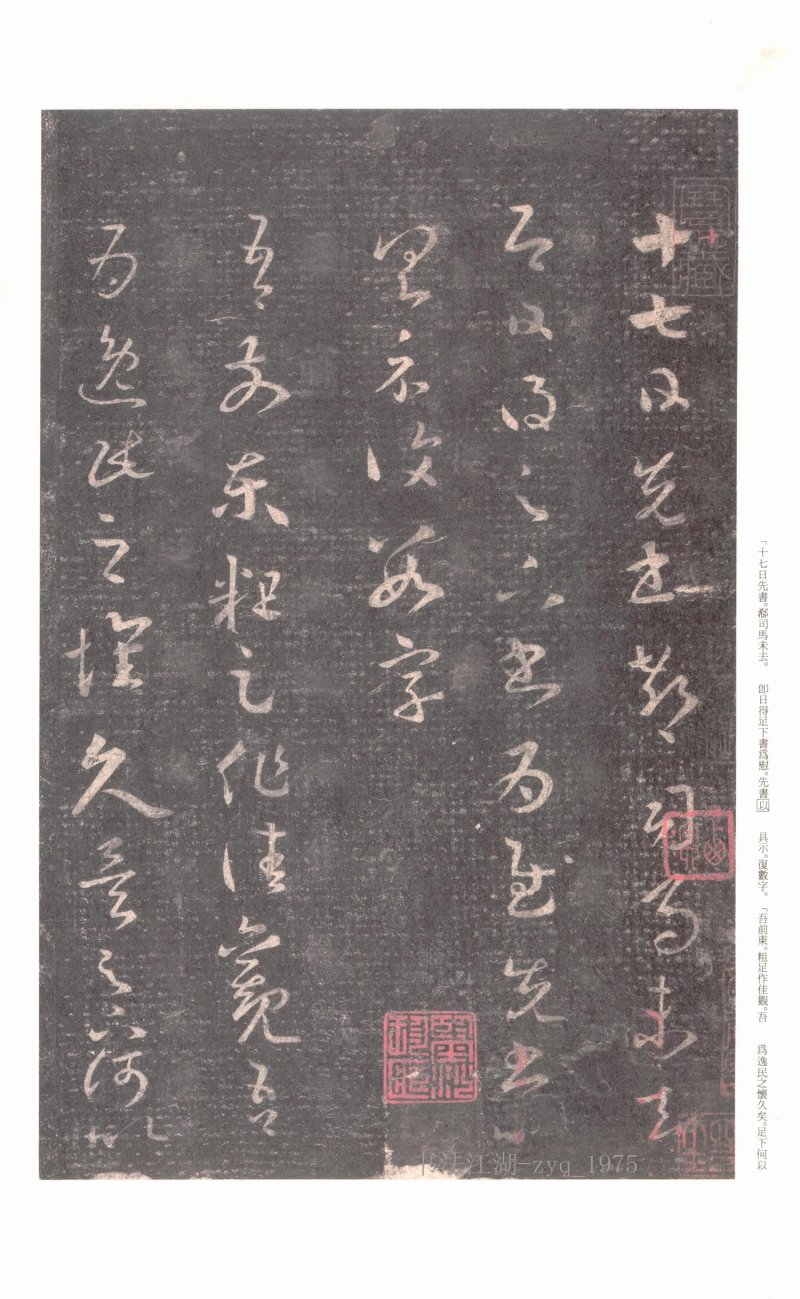 十七日先書郗司馬未去
即日得足下書為慰先書以
具示復數字
吾前東粗足作佳觀吾
為逸民之懷久矣足下何以
「十七日先書。郗司馬未去。　即日得足下書爲慰。先書以　具示。復數字。　「吾前東。粗足作佳觀。吾　爲逸民之懷久矣。足下何以
书法江湖-zyq_1975